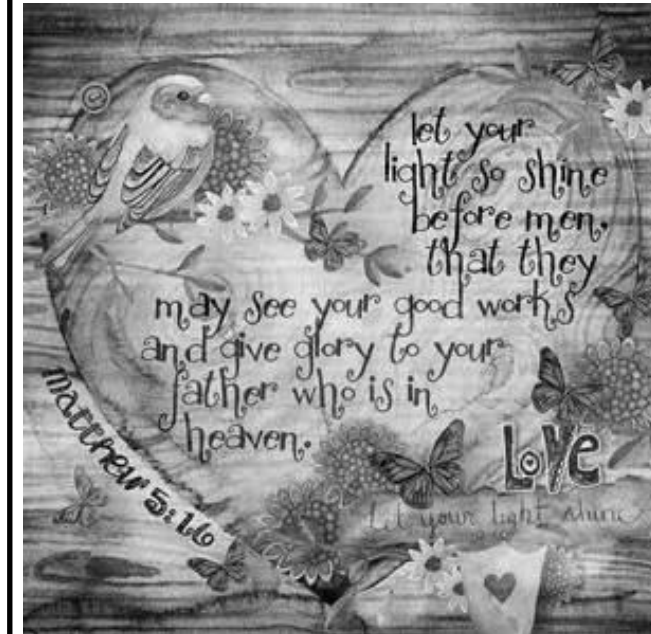 let your
light so shine
before men,
that they
may see your good works
and give glory to your
father who is in
heaven.
matthew 5:16
LoVe
Let your light shine